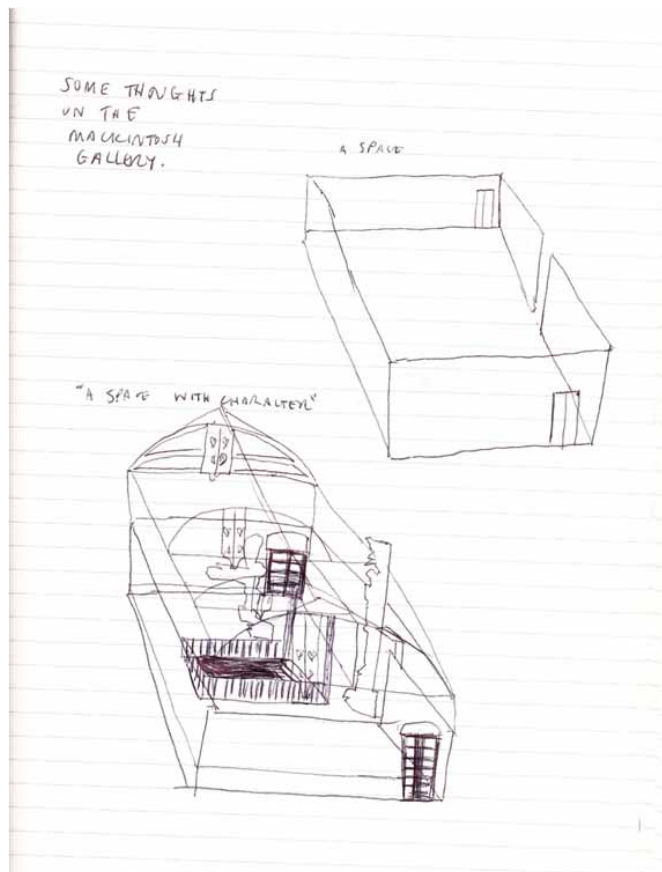 SOME THOUGHTS
ON THE
MACKINTOSH
GALLERY.
A SPACE
"A SPACE WITH CHARACTER"
1